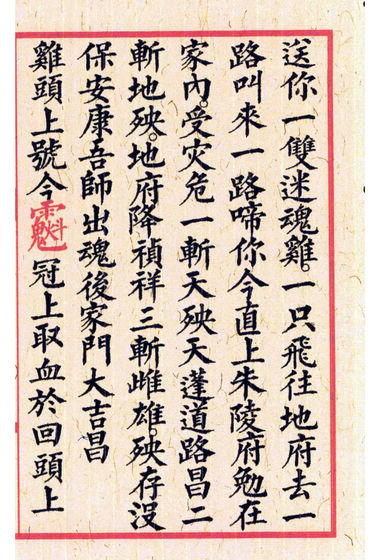 送你一雙迷魂雞。一只飛往地府去一
路叫來一路啼你今直上朱陵府勉在
家內。受灾危一斬天殃天蓬道路昌二
斬地殃。地府降禎祥三斬雌雄。殃存没
保安康吾師出魂後家門大吉昌
雞頭上號令冠上取血於回頭上